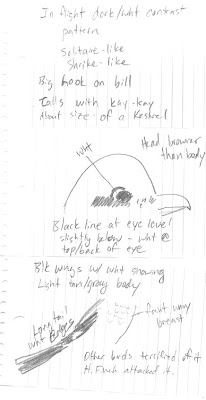 In flight dark/wht contrast
pattern
Solitaire-like
Shrike-like
Big hook on bill
Calls with kay-kay
About size of a Kestrel
Head browner
than body
wht
Black line at eye level
slightly below - wht @
top/back of eye
Blk wings w/ wht showing
Light tan/gray body
Long tail
wht edges
faint wavy
breast
Other birds terrified of it
H. Finch attacked it.